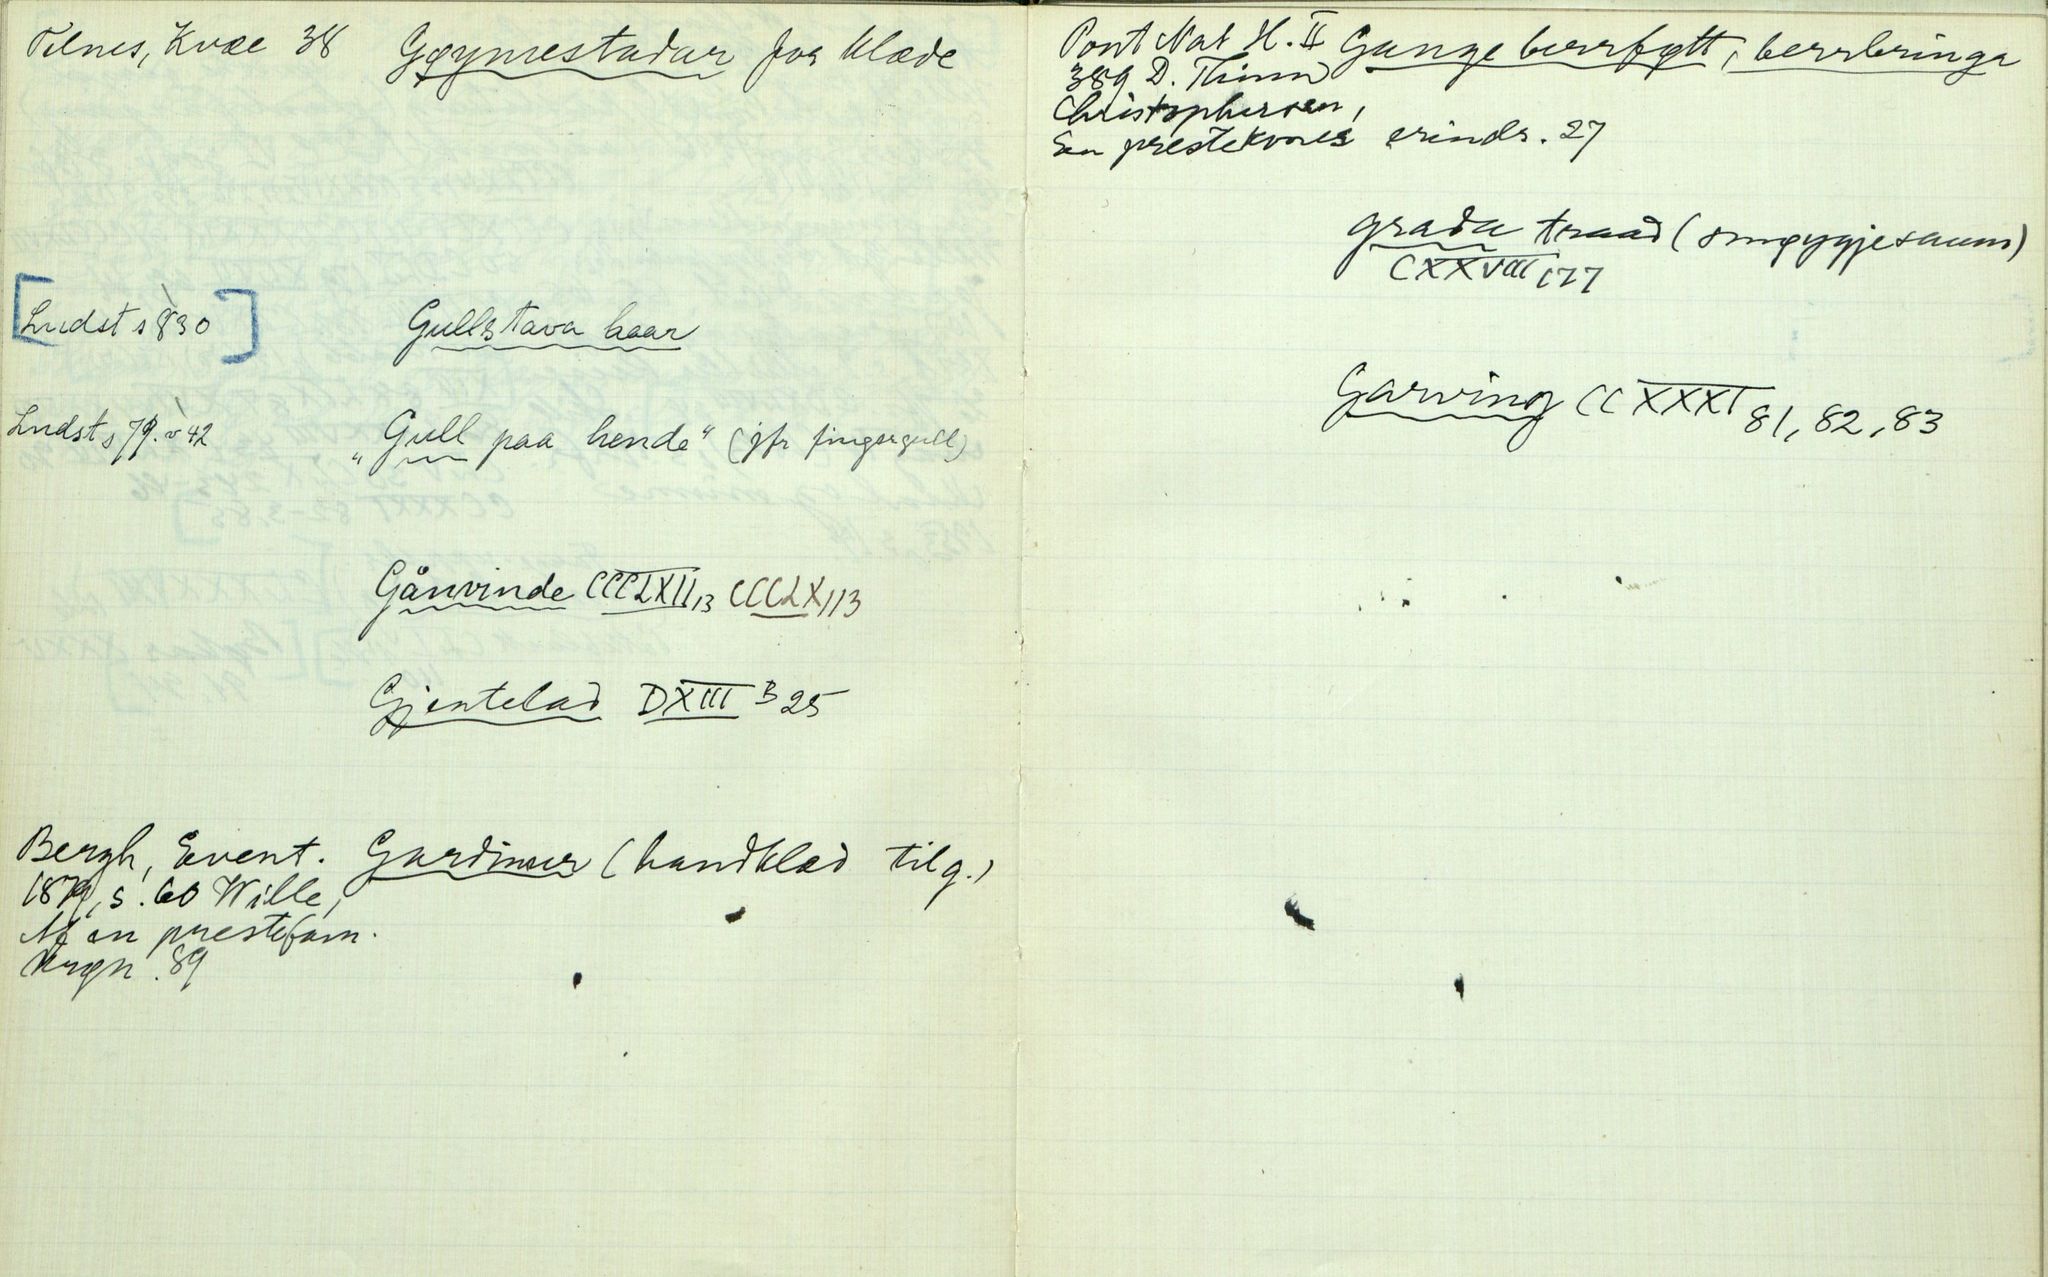 Tilnes, Kvæe 38 Gøymestadar for klæde
[Lndst s 830] Gullstava haar
Lndst s 79. v 42 „Gull paa hende" (jfr fingergull)
Gånvinde CCCLXII 13 CCCLX 113
Gjentelad DXIII B 25
Bergh, Event. Gardinur (handklæd tilg.)
1879, s. 60 Wille,
Af en prestefam.
krøn. 89
Pont Nat H. II Gange berrføtt, berrbringa
389 D. Thinn
Christophersen,
En prestekones erindr. 27
grada traad (smøygjesaum)
CXXVIII 177
Garving CCXXXI 81, 82, 83